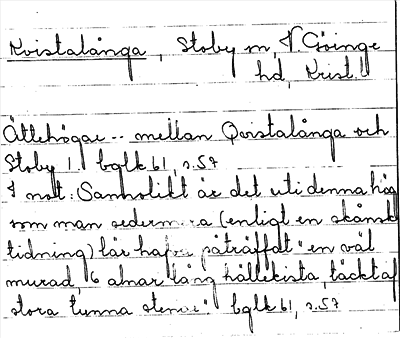 Kvistalånga, Stoby sn, V Göinge
hd, Krist. l
Ättehögar -- mellan Qvistalånga och
Stoby | bglk 61, s. 57
I not: Sannolikt är det uti denna hög
som man sedermera (enligt en skånsk
tidning) lär hafva påträffat "en väl
murad, 16 alnar lång hällekista, täckt af
stora tunna stenar". bglk 61, s. 57